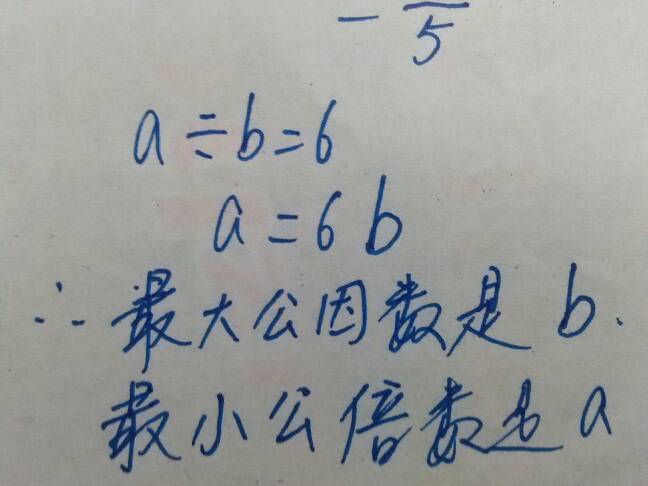 - —
5
a÷b=6
a=6b
∴最大公因数是b.
最小公倍数是a